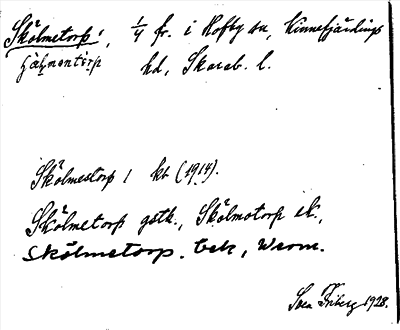 Skölmetorp, 1/4 fr. i Hofby sn, Kinnefjärdings
hd, Skarab. l.
Skölmestorp 1 kb (1914).
Skölmetorp gstk., Skölmotorp ek.,
Skölmetorp. Gek, Werm.
Svea Friberg 1928.